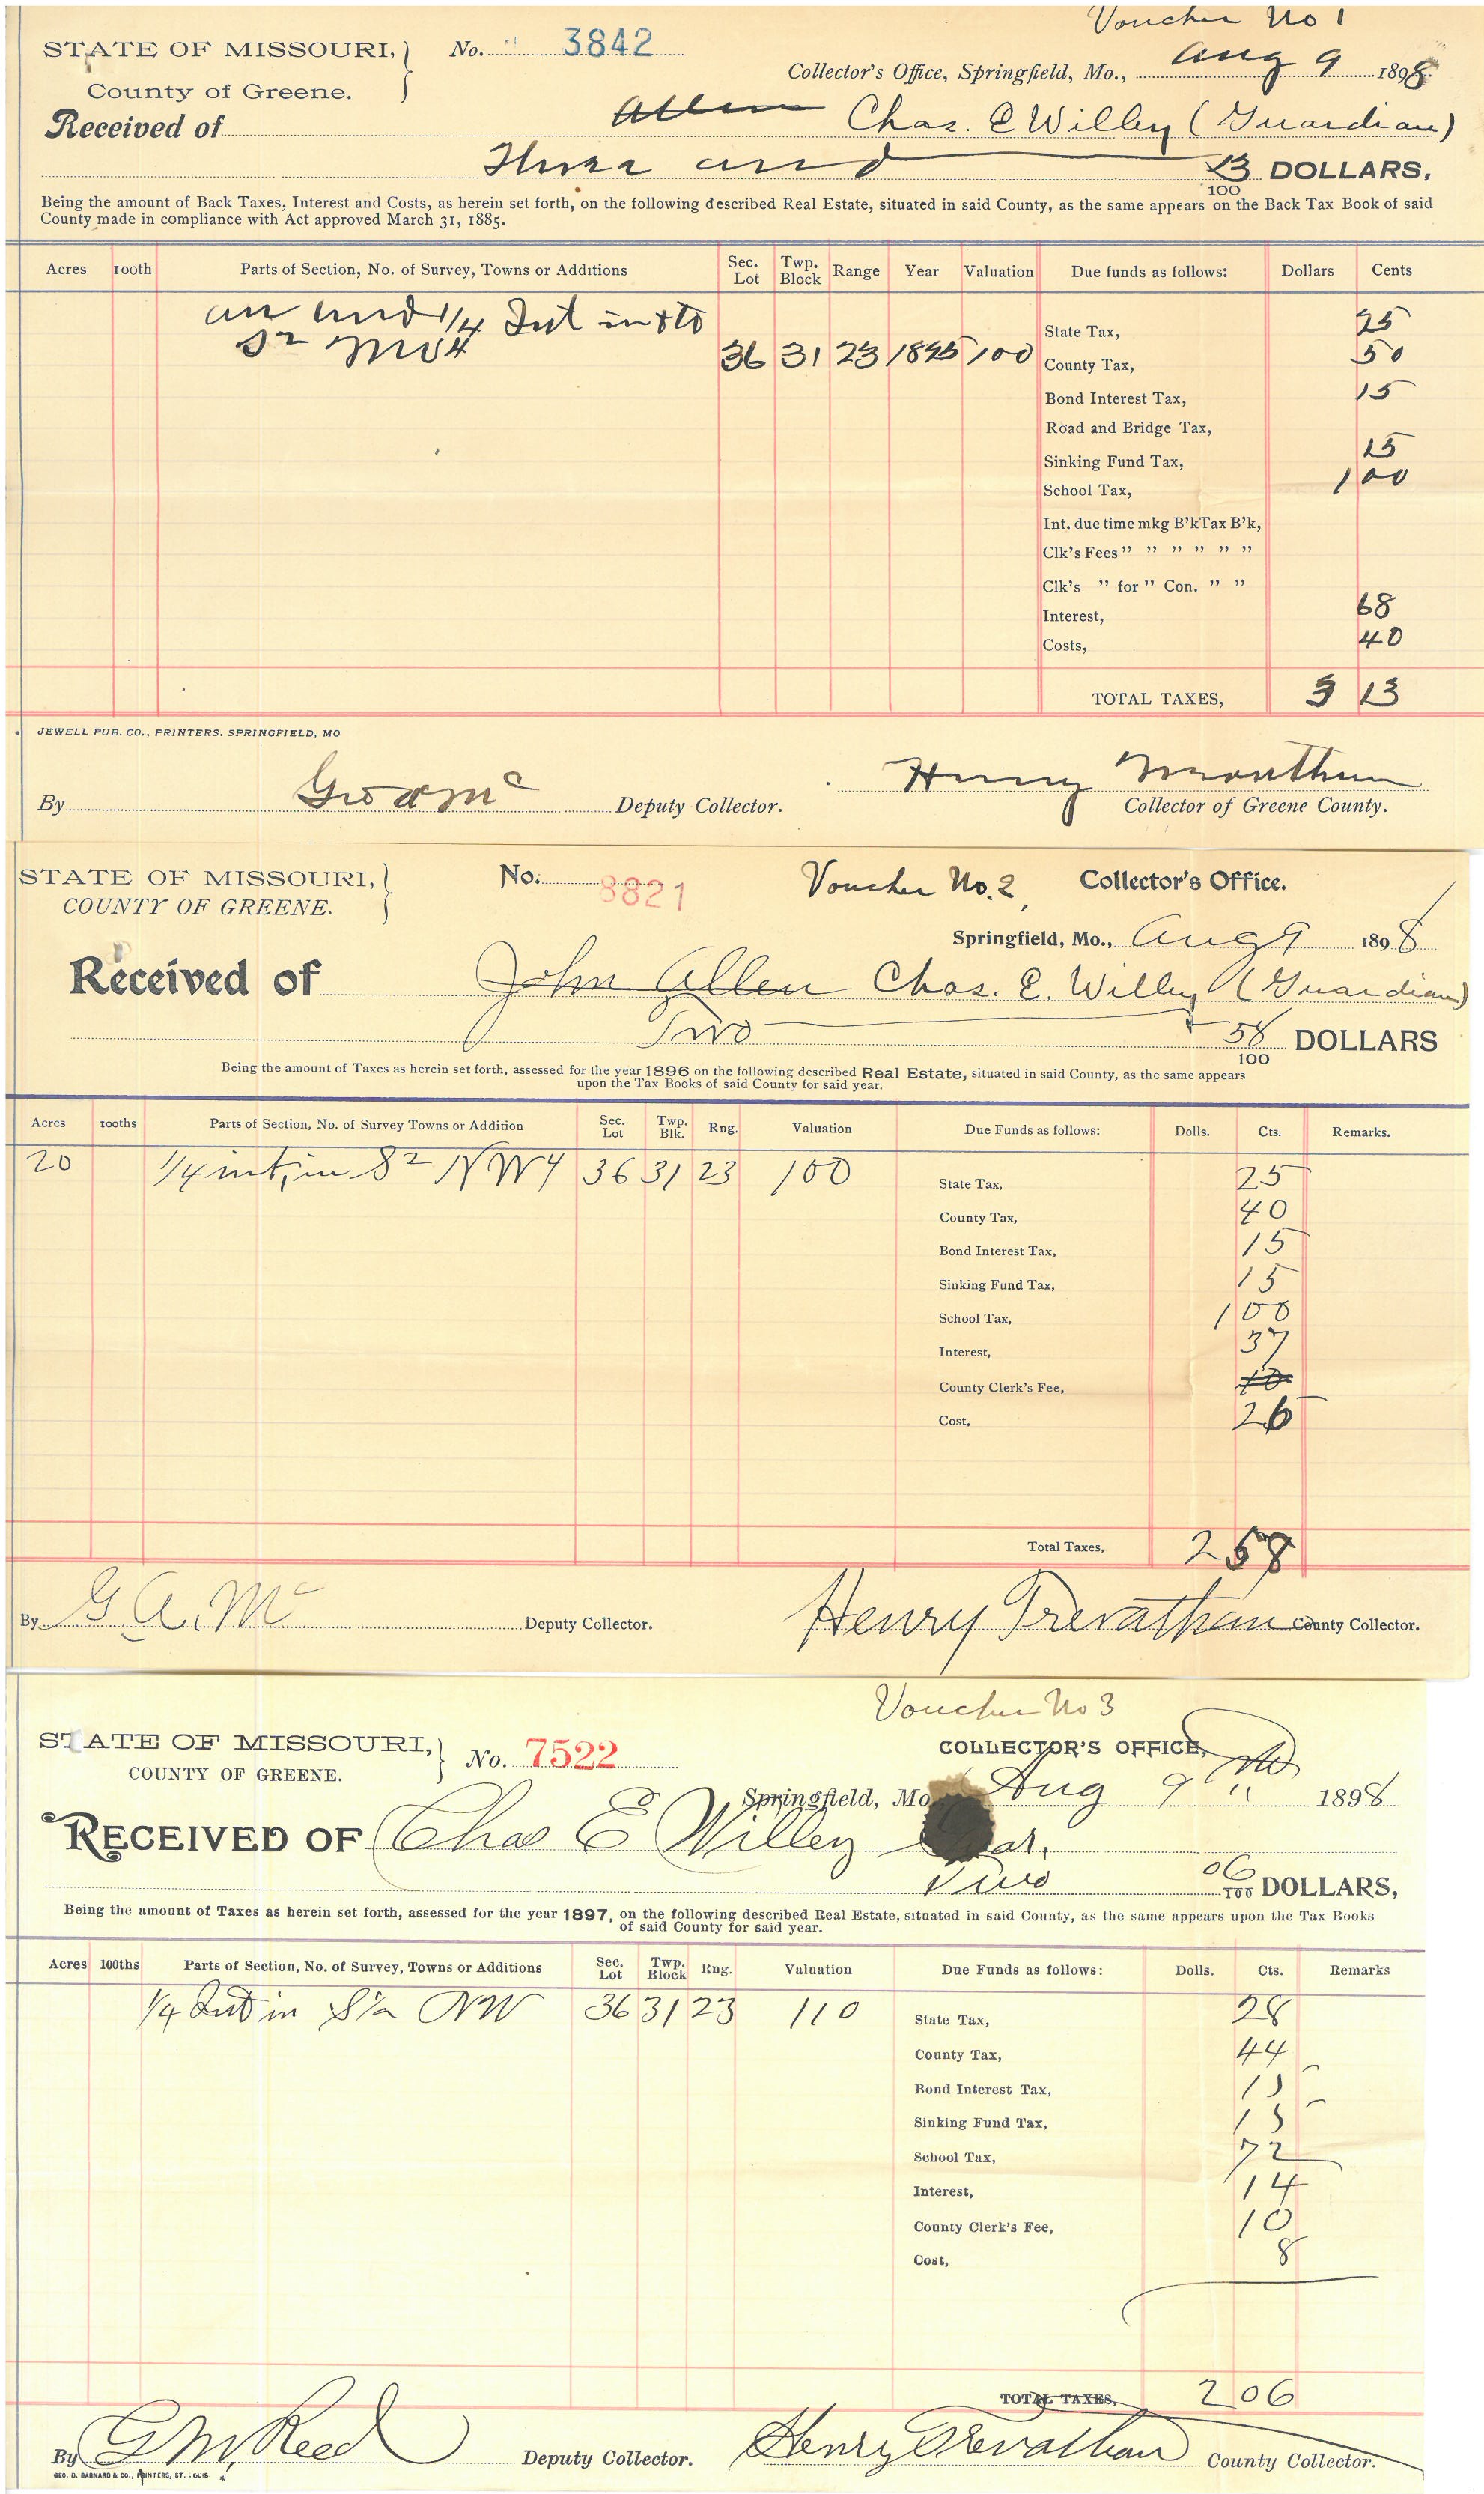 Voucher No 1
STATE OF MISSOURI, No. 3842
Collector's Office, Springfield, Mo., Aug 9 1898
County of Greene.
Received of Allen Chas. E Willey (Guardian)
Three and 13/100 DOLLARS,
Being the amount of Back Taxes, Interest and Costs, as herein set forth, on the following described Real Estate, situated in said County, as the same appears on the Back Tax Book of said
County made in compliance with Act approved March 31, 1885.
Acres 100th Parts of Section, No. of Survey, Towns or Additions Sec. Lot Twp. Block Range Year Valuation Due funds as follows: Dollars Cents
an und 1/4 Int in & to
State Tax, 25
S2 NW4 36 31 23 1895 100 County Tax, 50
Bond Interest Tax, 15
Road and Bridge Tax,
Sinking Fund Tax, 15
School Tax, 1 00
Int. due time mkg B'k Tax B'k,
Clk's Fees " " " " " "
Clk's " for " Con. " "
Interest, 68
Costs, 40
TOTAL TAXES, 3 13
JEWELL PUB. CO., PRINTERS. SPRINGFIELD, MO
By Deputy Collector. Henry Trevathan Collector of Greene County.
STATE OF MISSOURI, No. 8821 Voucher No. 2 Collector's Office.
COUNTY OF GREENE.
Springfield, Mo., Aug 9 1898
Received of John Allen Chas. E. Willey (Guardian)
Two & 58/100 DOLLARS
Being the amount of Taxes as herein set forth, assessed for the year 1896 on the following described Real Estate, situated in said County, as the same appears
upon the Tax Books of said County for said year.
Acres 100ths Parts of Section, No. of Survey Towns or Addition Sec. Lot Twp. Blk. Rng. Valuation Due Funds as follows: Dolls. Cts. Remarks.
20 1/4 int, in S2 NW4 36 31 23 100 State Tax, 25
County Tax, 40
Bond Interest Tax, 15
Sinking Fund Tax, 15
School Tax, 1 00
Interest, 37
County Clerk's Fee, 10
Cost, 26
Total Taxes, 2 58
By G. A. Mc Deputy Collector. Henry Trevathan County Collector.
Voucher No 3
STATE OF MISSOURI, No. 7522 COLLECTOR'S OFFICE,
COUNTY OF GREENE.
Springfield, Mo Aug 9 " 1898
RECEIVED OF Chas E Willey
Two 06/100 DOLLARS,
Being the amount of Taxes as herein set forth, assessed for the year 1897, on the following described Real Estate, situated in said County, as the same appears upon the Tax Books
of said County for said year.
Acres 100ths Parts of Section, No. of Survey, Towns or Additions Sec. Lot Twp. Block Rng. Valuation Due Funds as follows: Dolls. Cts. Remarks
1/4 Int in S1/2 NW 36 31 23 110 State Tax, 28
County Tax, 44
Bond Interest Tax, 15
Sinking Fund Tax, 15
School Tax, 72
Interest, 14
County Clerk's Fee, 10
Cost, 8
TOTAL TAXES, 2 06
By G M. Reed Deputy Collector. Henry Trevathan County Collector.
GEO. D. BARNARD & CO., PRINTERS, ST. LOUIS